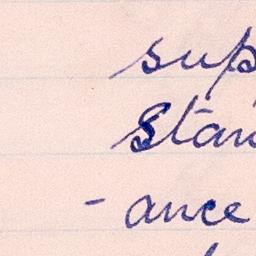 sup
Stan
- ance